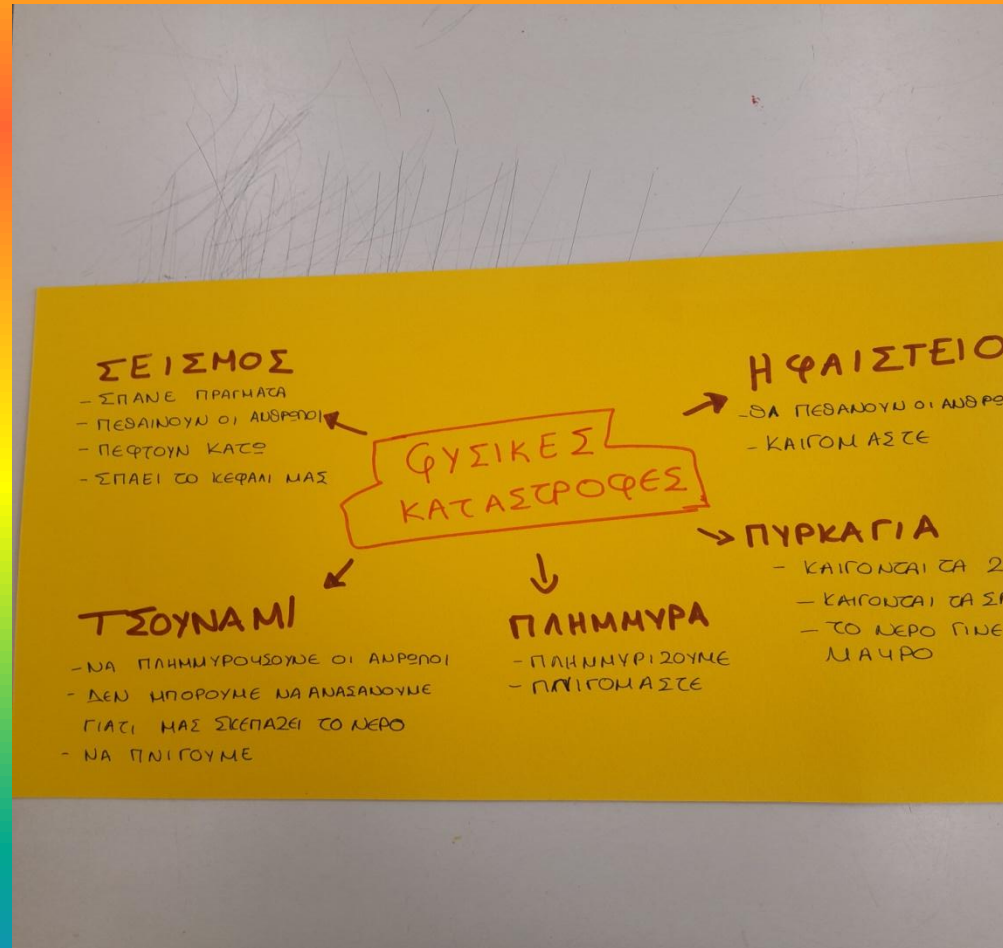 ΦΥΣΙΚΕΣ
ΚΑΤΑΣΤΡΟΦΕΣ
ΣΕΙΣΜΟΣ
- ΣΠΑΝΕ ΠΡΑΓΜΑΤΑ
- ΠΕΘΑΙΝΟΥΝ ΟΙ ΑΝΘΡΩΠΟΙ
- ΠΕΦΤΟΥΝ ΚΑΤΩ
- ΣΠΑΕΙ ΤΟ ΚΕΦΑΛΙ ΜΑΣ
ΗΦΑΙΣΤΕΙΟ
- ΘΑ ΠΕΘΑΝΟΥΝ ΟΙ
- ΚΑΙΓΟΜΑΣΤΕ
ΠΥΡΚΑΓΙΑ
- ΚΑΙΓΟΝΤΑΙ ΤΑ
- ΚΑΙΓΟΝΤΑΙ ΤΑ
- ΤΟ ΝΕΡΟ
ΜΑΥΡΟ
ΤΣΟΥΝΑΜΙ
- ΝΑ ΠΛΗΜΜΥΡΟΥΣΟΥΝΕ ΟΙ ΑΝΡΩΠΟΙ
- ΔΕΝ ΜΠΟΡΟΥΜΕ ΝΑ ΑΝΑΣΑΝΟΥΜΕ
ΓΙΑΤΙ ΜΑΣ ΣΚΕΠΑΖΕΙ ΤΟ ΝΕΡΟ
- ΝΑ ΠΝΙΓΟΥΜΕ
ΠΛΗΜΜΥΡΑ
- ΠΛΗΜΜΥΡΙΖΟΥΜΕ
- ΠΝΙΓΟΜΑΣΤΕ